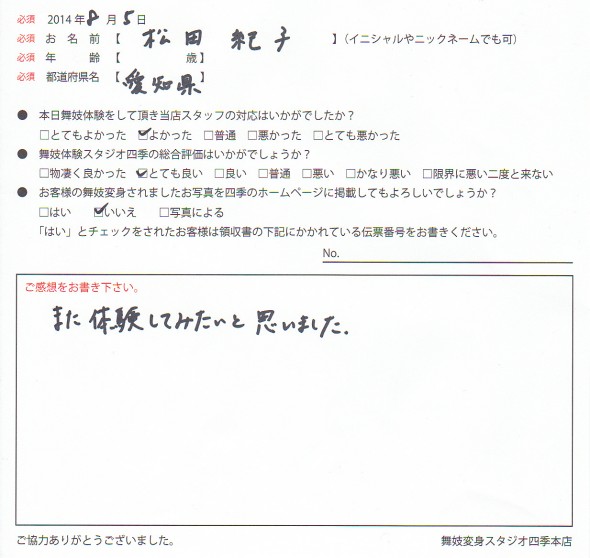 必須 2014年8月5日
必須 お名前【 松田 紀子 】(イニシャルやニックネームでも可)
必須 年齢【 歳】
必須 都道府県名【愛知県】
● 本日舞妓体験をして頂き当店スタッフの対応はいかがでしたか？
□とてもよかった ☑よかった □普通 □悪かった □とても悪かった
● 舞妓体験スタジオ四季の総合評価はいかがでしょうか？
□物凄く良かった ☑とても良い □良い □普通 □悪い □かなり悪い □限界に悪い二度と来ない
● お客様の舞妓変身されましたお写真を四季のホームページに掲載してもよろしいでしょうか？
□はい ☑いいえ □写真による
「はい」とチェックをされたお客様は領収書の下記にかかれている伝票番号をお書きください。
No.
ご感想をお書き下さい。
また体験してみたいと思いました.
ご協力ありがとうございました。 舞妓変身スタジオ四季本店